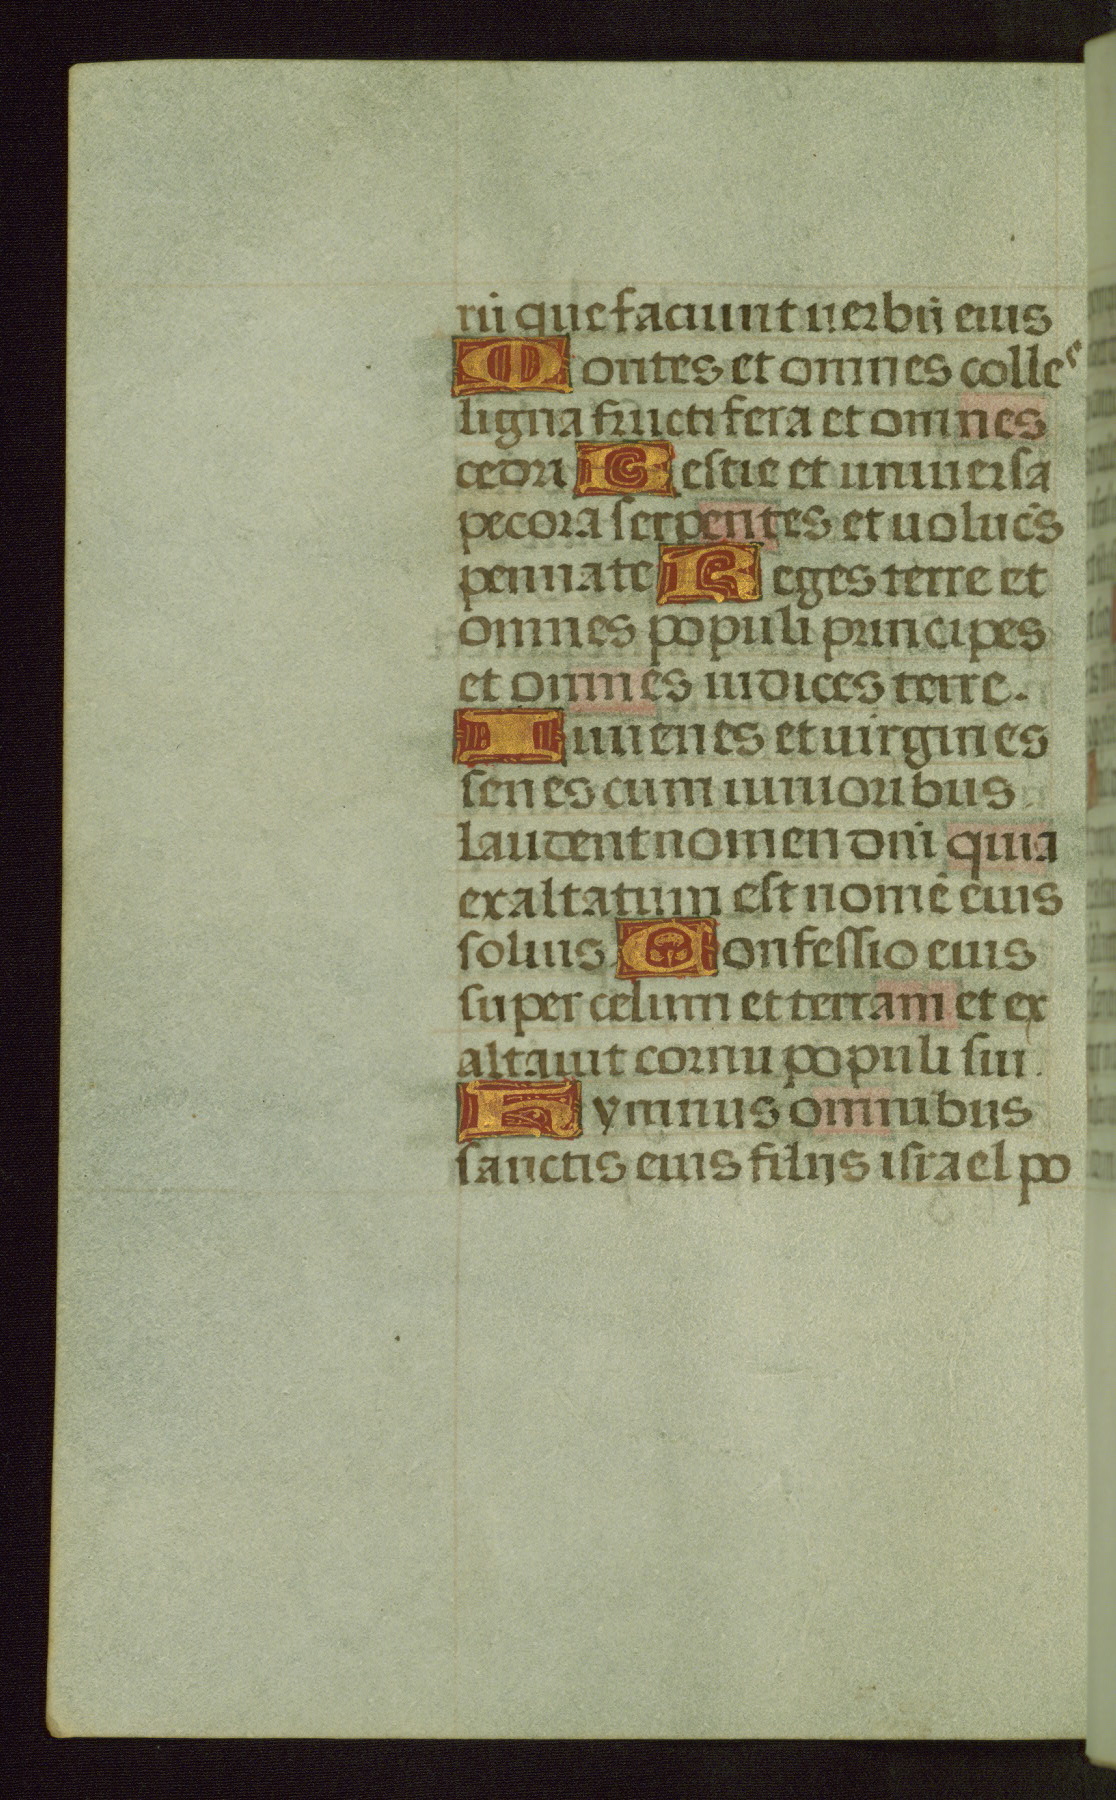 rū que faciunt uerbū eius
Montes et omnes colles
ligna fructifera et omnes
cedri Bestie et uniuersa
pecora serpentes et uoluc̄s
pennate Reges terre et
omnes populi principes
et omnes iudices terre.
Iuuenes et uirgines
senes cum iunioribus
laudent nomen dn̄i quia
exaltatum est nomē eius
solius Confessio eius
super celum et terram et ex
altauit cornu populi sui.
Hymnus omnibus
sanctis eius filijs israel po